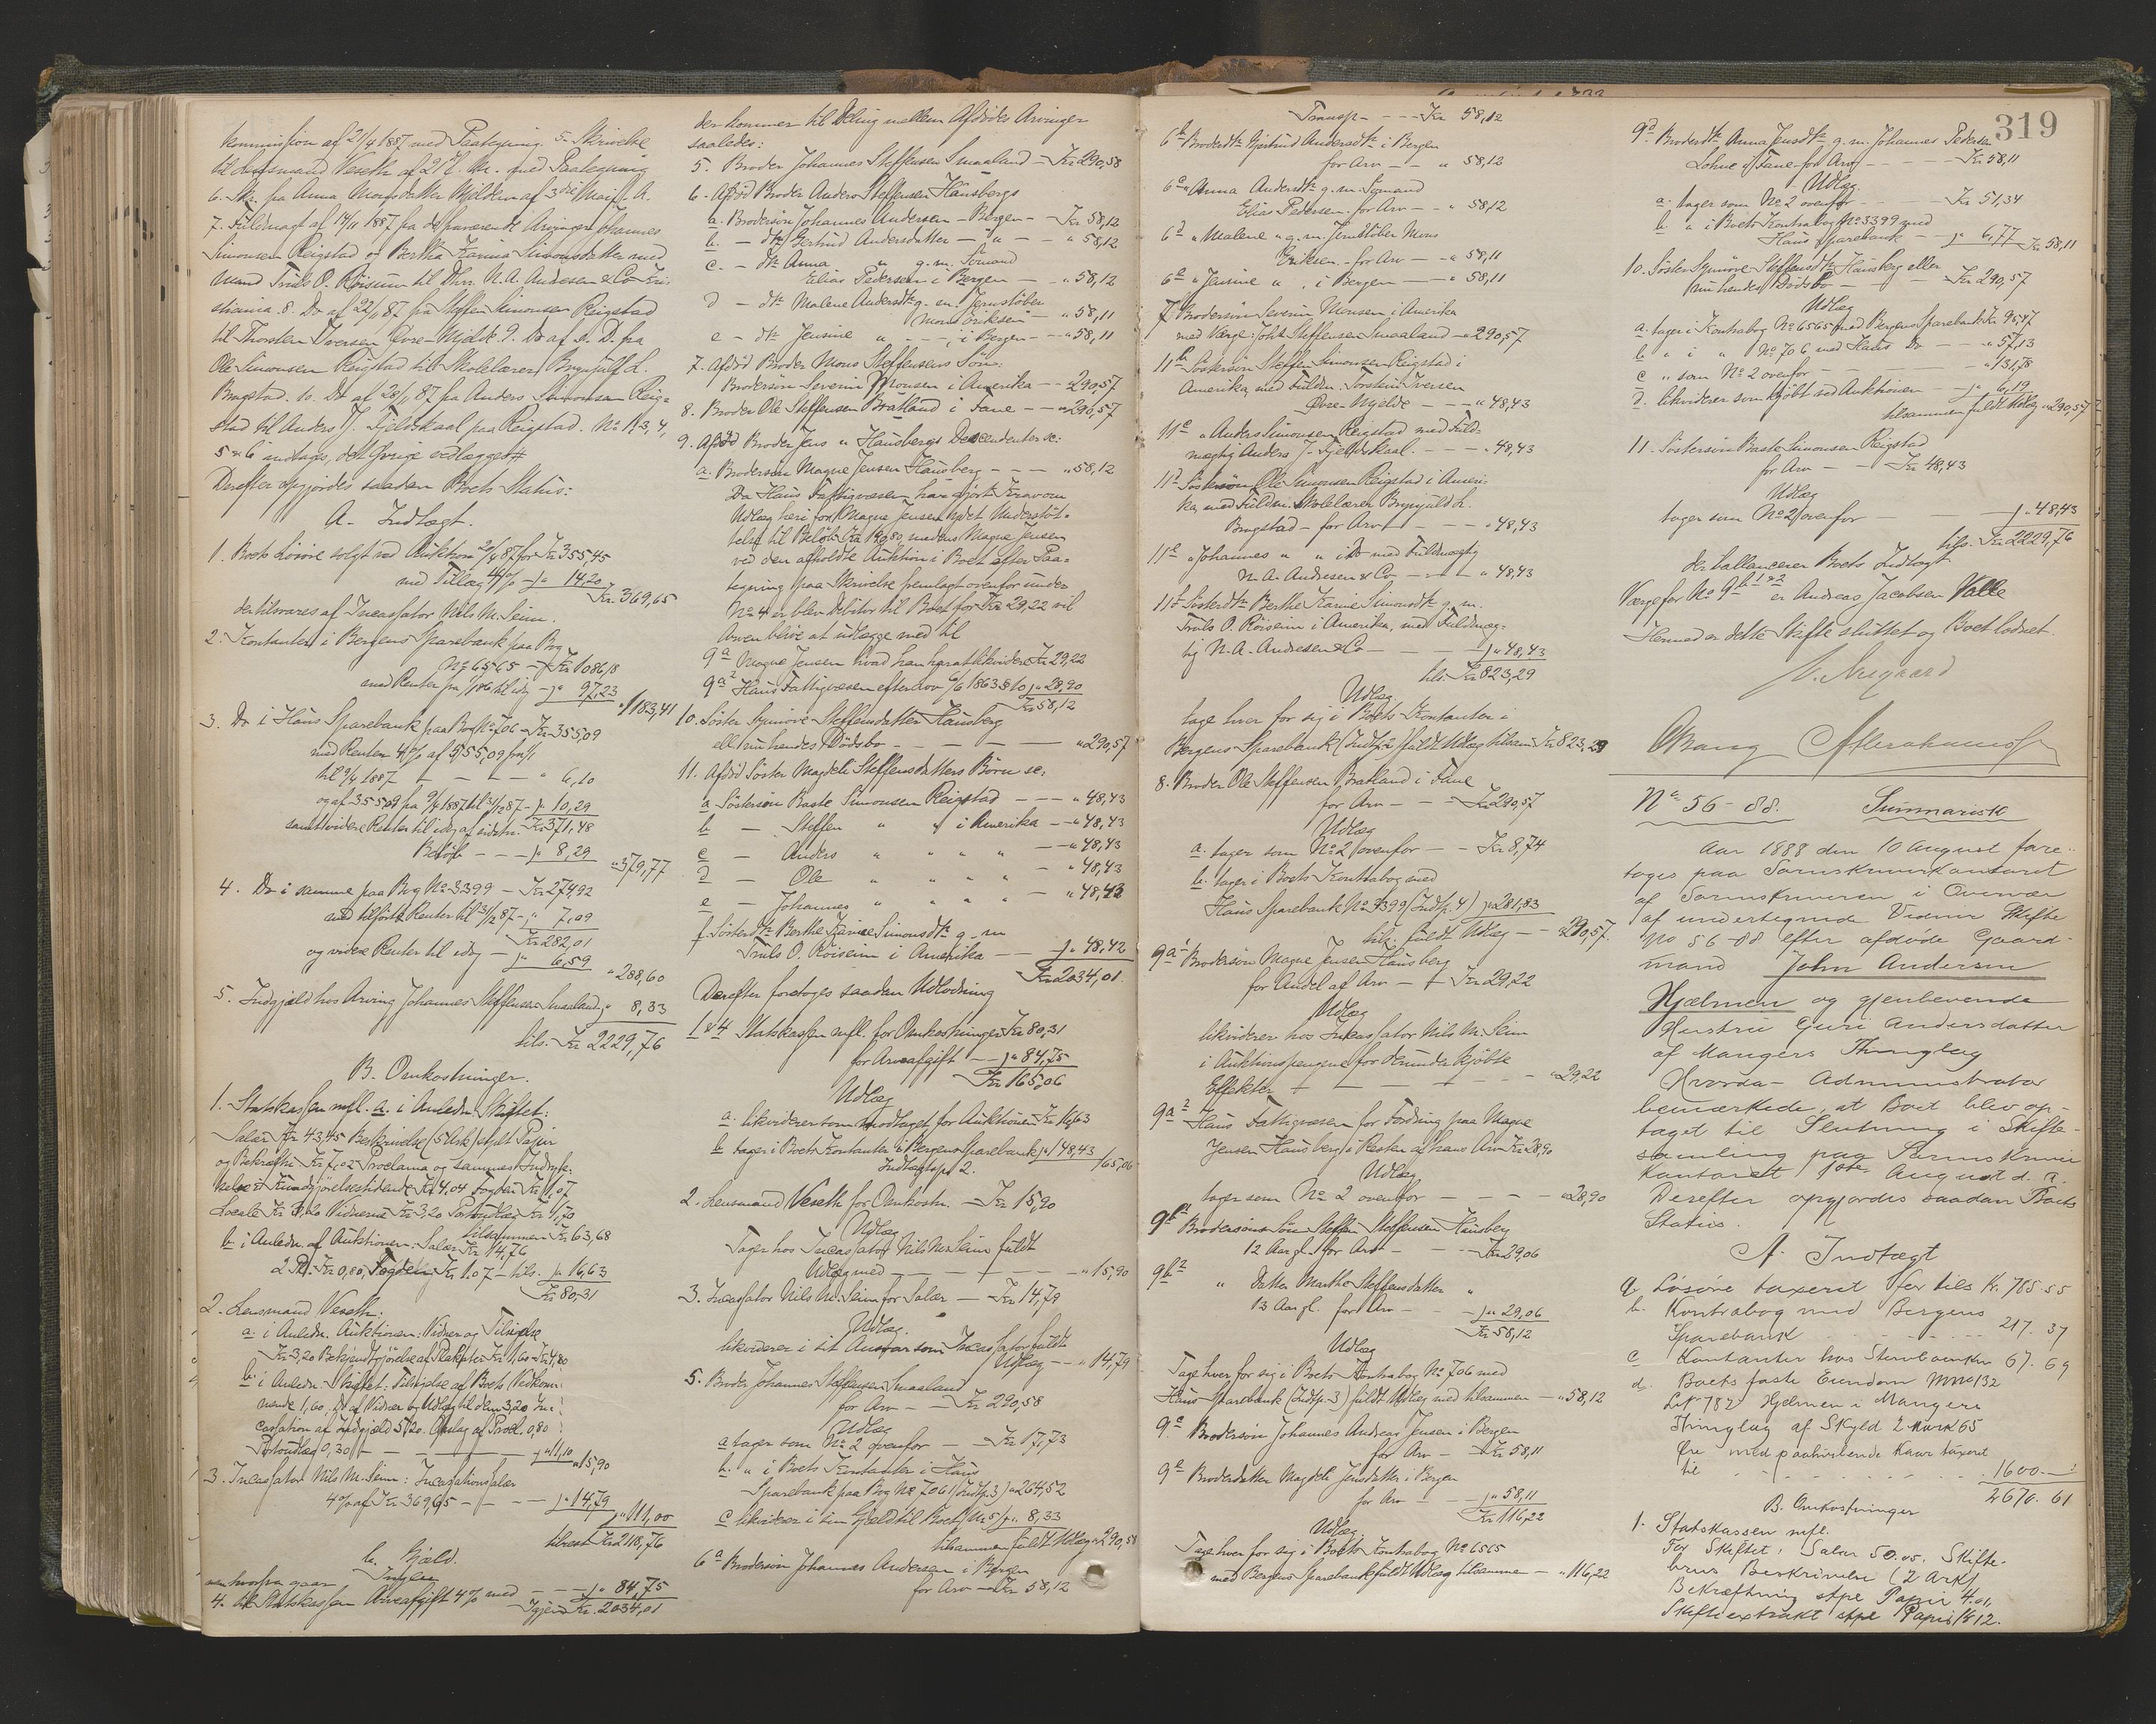 kommission af 21/4 1887 med Paategning. 5. Skrivelse
til Lensmand Veseth af 21/ med Paategning
6. Skr. fra Anna Monsdatter Mjelden af 3die Mai f. A.
7. Fuldmagt af 14/11 1887 fra de fraværende Arvinger Johannes
Simonsen Reigstad og Bertha Karine Simonsdatter med
mand Truls O. Röiseim til Dhrr. N. A. Andresen & Co Kri-
stiania. 8. Do af 22/11 87 fra Steffen Simonsen Reigstad
til Thorsten Iversen Övre-Mjelde. 9. Do af s. D. fra
Ole Simonsen Reigstad til Skolelærer Brynjulf L.
Brugstad. 10. Do af 28/11 87 fra Anders Simonsen Reig-
stad til Anders J. Fjeldskaal paa Reigstad. No 1, 3, 4,
5 & 6 indtages, det Övrige vedlægges
Derefter opgjordes saadan Boets Status:
A. Indtægt.
1. Boets Lösöre solgt ved Auktion 20/4 87 for Kr 355,45
med Tillæg 4% - " 14,20
Kr 369,65
der tilsvares af Incassator Nils M. Seim.
2. Kontanter i Bergens Sparebank paa Bog
No 6565 - Kr 1086,18
med Renter fra 1/1 86 til idag - " 97,23
" 1183,41
3. Do i Haus Sparebank paa Bog No 706 - Kr 355,09
med Renter 4% af 555,09 fra 1/1
til 9/4 1887 - - - " 6,10
og af 355,09 fra 9/4 1887 til 31/12 87 - " 10,29
samt videre Renter til idag af sidstn. Kr 371,48
Beløb - - - " 8,29
" 379,77
4. Do i samme paa Bog No 3399 - Kr 274,92
med tilførte Renter til 31/12 87 - " 7,09
Kr 282,01
og videre Renter til idag - " 6,59
" 288,60
5. Indgjæld hos Arving Johannes Steffensen Smaaland " 8,33
tils. Kr 2229,76
B. Omkostninger.
1. Statskassen mfl. a. i Anledn. Skiftet:
Salær Kr 43,45 Beskrivelse (5 Ark) stplt Papir
og Bekræftn Kr 7,02 Proclama og sammes Indryk-
kelse i Kundgjörelsestidende Kr 4,04 Fogden Kr 1,07
Locale Kr 3,20 Vidnerne Kr 3,20 Portoudlæg Kr 1,70
tilsammen Kr 63,68
b. i Anledn. af Auktionen: Salær Kr 14,76
2 Pl. Kr 0,80, Fogden Kr 1.07 - tils. " 16,63
Kr 80,31
2. Lensmand Veseth:
a. i Anledn. Auktionen: Vidner og Tilsigelse
Kr 3,20 Bekjendtgjörelse af Plakater Kr 1,60 = Kr 4,80
b. i Anledn. Skiftet: Tilsigelse af Boets Vedkom-
mende 1,60. Do af Vidner og Udlæg til dem 3,20 In-
cassation af Indgjæld 5,20. Opslag af Procl. 0,80
Portoudlæg 0,30 - - - " 11,10 " 15,90
3. Incassator Nils M. Seim: Incassationssalær
4% af Kr 369,65 - - - " 14,79
" 111,00
tilrest Kr 2118,76
b. Gjæld.
Ingen
hvorfra gaar
4. til Statskassen Arveafgift 4% med - - - " 84,75
Igjen Kr. 2034,01
der kommer til Deling mellem Afdödes Arvinger
saaledes:
5. Broder Johannes Steffensen Smaaland - Kr 290,58
6. Afdöd Broder Anders Steffensen Hausbergs
a. Brodersön Johannes Andersen - Bergen - - Kr 58,12
b. - dtr Gertrud Andersdatter - " - - " 58,12
c. - dtr Anna " g. m. Sömand
Elias Pedersen i Bergen - - " 58,12
d - dtr Malene Andersdtr g. m. Jernstöber
Mons Eriksen - " 58,11
e - dtr Jensine " - -, i Bergen - - " 58,11
7. Afdöd Broder Mons Steffensens Sön:
Brodersön Severin Monsen i Amerika - - 290,57
8. Broder Ole Steffensen Bratland i Fane - - " 290,57
9. Afdöd Broder Jens " Hausbergs Descendenter se:
a. Brodersön Magne Jensen Hausberg - - - " 58,12
Da Haus Fattigvæsen har gjort Krav om
Udlæg heri for Magne Jensen ydet Understöt-
telse til Belöb Kr 190,80, medens Magne Jensen
ved den afholdte Auktion i Boet efter Paa-
tegning paa Skrivelse fremlagt ovenfor under
No 4 er blev Debitor til Boet for Kr 29,22 vil
Arven blive at udlægge med til
9a Magne Jensen hvad han har at likvidere Kr 29,22
9a2 Haus Fattigvæsen efter Lov 6/6 1863 § 10 " 28,90
Kr 58,12
10. Söster Synnöve Steffensdatter Hausberg
ell. nu hendes Dödsbo - - - - " 290,57
11. Afdöd Söster Magdeli Steffensdatters Börn se:
a Söstersön Baste Simonsen Reigstad - - - " 48,43
b - Steffen " " i Amerika - - " 48,43
c - Anders " " " " - - " 48,43
d - Ole " " " " - " 48,43
e - Johannes " " " " - " 48,43
f. Sösterdtr Berthe Karine Simonsdtr g. m
Truls O. Röiseim i Amerika - - " 48,42
Kr 2034,01.
Derefter foretoges saadan Udlodning
1 & 4 Statskassen mfl. for Omkostninger Kr 80,31
for Arveafgift - - " 84,75
Kr 165,06
Udlæg
a. likviderer som modtaget for Auktionen Kr 16,63
b tager i Boets Kontanter i Bergens Sparebank " 148,43
Indtægtsp. 2. 165,06
2. Lensmand Veseth for Omkostn. - Kr 15,90
Udlæg
Tager hos Incassator Nils M. Seim fuldt
Udlæg med - - - - " 15,90
3. Incassator Nils M. Seim for Salær - Kr 14,79
Udlæg.
likviderer i sit Ansvar som Incassator fuldt
Udlæg - - " 14,79
5. Broder Johannes Steffensen Smaaland
for Arv - - Kr 290,58
Udlæg
a tager som No 2 ovenfor - - Kr 17,73
b. " i Boets Kontanter i Haus
Sparebank paa Bog No 706 (Indtp. 3) " 264,52
c likviderer i sin Gjæld til Boet (No 5) " 8,33
tilsammen fuldt Udlæg " 290,58
6a Brodersön Johannes Andersen i Bergen
for Arv - Kr 58,12
Transp. - - - Kr 58,12
6b Broderdtr Gjertrud Andersdtr i Bergen
for Arv - - " 58,12
6c " Anna Andersdtr g. m. Sömand
Elias Pedersen - for Arv - - " 58,12
6d " Malene " g. m. Jernstöber Mons
Eriksen - for Arv - - " 58,11
6e " Jensine ", i Bergen - - " 58,11
7 Brodersön Severin Monsen i Amerika
med Værge: Johs Steffensen Smaaland - " 290,57
11b Söstersön Steffen Simonsen Reigstad i
Amerika, med Fuldm. Torstein Iversen
Övre-Mjelde - - - " 48,43
11c " Anders Simonsen Reigstad med Fuld-
mægtig Anders J. Fjeldskaal - - - " 48,43
11d Söstersön Ole Simonsen Reigstad i Ameri-
ka, med Fuldm. Skolelærer Brynjulf L.
Brugstad - for Arv - - - " 48,43
11e " Johannes " " i Do med Fuldmægtig
N. A. Andresen & Co - - - " 48,43
11f Sösterdtr Berthe Karine Simonsdtr g. m.
Truls O. Röiseim i Amerika, med Fuldmæg-
tig N. A. Andresen & Co - - - " 48,43
tils. Kr 823,29
Udlæg
tage hver for sig i Boets Kontanter i
Bergens Sparebank (Indtp. 2) fuldt Udlæg tilsam. Kr 823,29
8. Broder Ole Steffensen Bratland i Fane
for Arv - - - Kr 290,57
Udlæg
a. tager som No 2 ovenfor - - Kr 8,74
b. tager i Boets Kontrabog med
Haus Sparebank No 3399 (Indtp. 4) " 281,83
tils. fuldt Udlæg - - " 290,57.
9a1 Brodersön Magne Jensen Hausberg
for Andel af Arv - - Kr 29,22
Udlæg
likviderer hos Incassator Nils M. Seim
i Auktionspengene for derunder kjöbte
Effekter - - - - - " 29,22
9a2 Haus Fattigvæsen for Fordring paa Magne
Jensen Hausberg i Resten af hans Arv Kr 28,90
Udlæg
tager som No 2 ovenfor - - - " 28,90
9b1 Brodersöns Sön Steffen Steffensen Hausberg
12 Aar gl. for Arv - - - Kr 29,06
9b2 " Datter Martha Steffensdatter "
13 Aar gl. for Arv - - " 29,06
Kr 58,12
Udlæg
Tage hver for sig i Boets Kontrabog No 706 med
Haus Sparebank (Indtp. 3) fuldt Udlæg med tilsammen - " 58,12
9c Brodersön Johannes Andreas Jensen i Bergen
for Arv - Kr 58,11
9e Broderdatter Magdeli Jensdatter i Bergen
for Arv - - " 58,11
Kr 116,22
Udlæg
Tage hver for sig i Boets Kontrabog No 6565
med Bergens Sparebank fuldt Udlæg tilsamme - " 116,22
319
9d Broderdtr Anna Jensdtr g. m. Johannes Pedersen
Lohne i Fane for Arv - - - Kr 58,11
Udlæg
a. tager som No 2 ovenfor - - Kr 51,34
b. " i Boets Kontrabog No 3399 med
Haus Sparebank - - " 6,77 Kr 58,11
10. Söster Synnöve Steffensdtr Hausberg eller
nu hendes Dödsbo - - - Kr 290,57
Udlæg
a. tager i Kontrabog No 6565 med Bergens Sparebank Kr 95,47
b " i " No 706 med Haus Do - - " 57,13
c " som No 2 ovenfor - - - " 131,78
d. likviderer som kjöbt ved Auktionen - " 6,19
tilsammen fuldt Udlæg " 290,57
11. Söstersön Baste Simonsen Reigstad
for Arv - - Kr 48,43
Udlæg
tager som No 2 ovenfor - " 48,43
tils. Kr 2229,76
der ballancerer Boets Indtægt
Værge for No 9b 1 & 2 er Andreas Jacobsen Valle
Hermed er dette Skifte sluttet og Boet lodnet.
No 56-88. Summarisk
Aar 1888 den 10 August fore-
toges paa Sorenskriverkontoret
af Sorenskriveren i Overvær
af undertegnede Vidner Skifte
No 56-88 efter afdøde Gaard-
mand John Andersen
Hjelmen og gjenlevende
Hustru Guri Andersdatter
af Mangers Thinglag
Hvorda- Administrator
bemærkede, at Boet blev op-
taget til Slutning i Skifte-
samling paa Sorenskriver
kontoret 10de August d. A.
Derefter opgjordes saadan Boets
Status.
A. Indtægt
a. Løsøre taxeret for tils Kr. 785 55
b. Kontrabog med Bergens
Sparebank - - - - 217. 37
c Kontanter hos Stervboenken 67. 69
d. Boets faste Eiendom Mno 132
LNo 782 Hjelmen i Mangers
Thinglag af Skyld 2 Mark 65
Øre med paahvilende Kaar taxeret
til - - - - 1600.-
2670. 61
B. Omkostninger
1. Statskassen mfl.
For Skiftet: Salær 50.05. Skifte-
brevs Beskrivelse (2 Ark)
Bekræftning stpl Papir 4.01,
Skifteextrakt stpl Papir 1812.